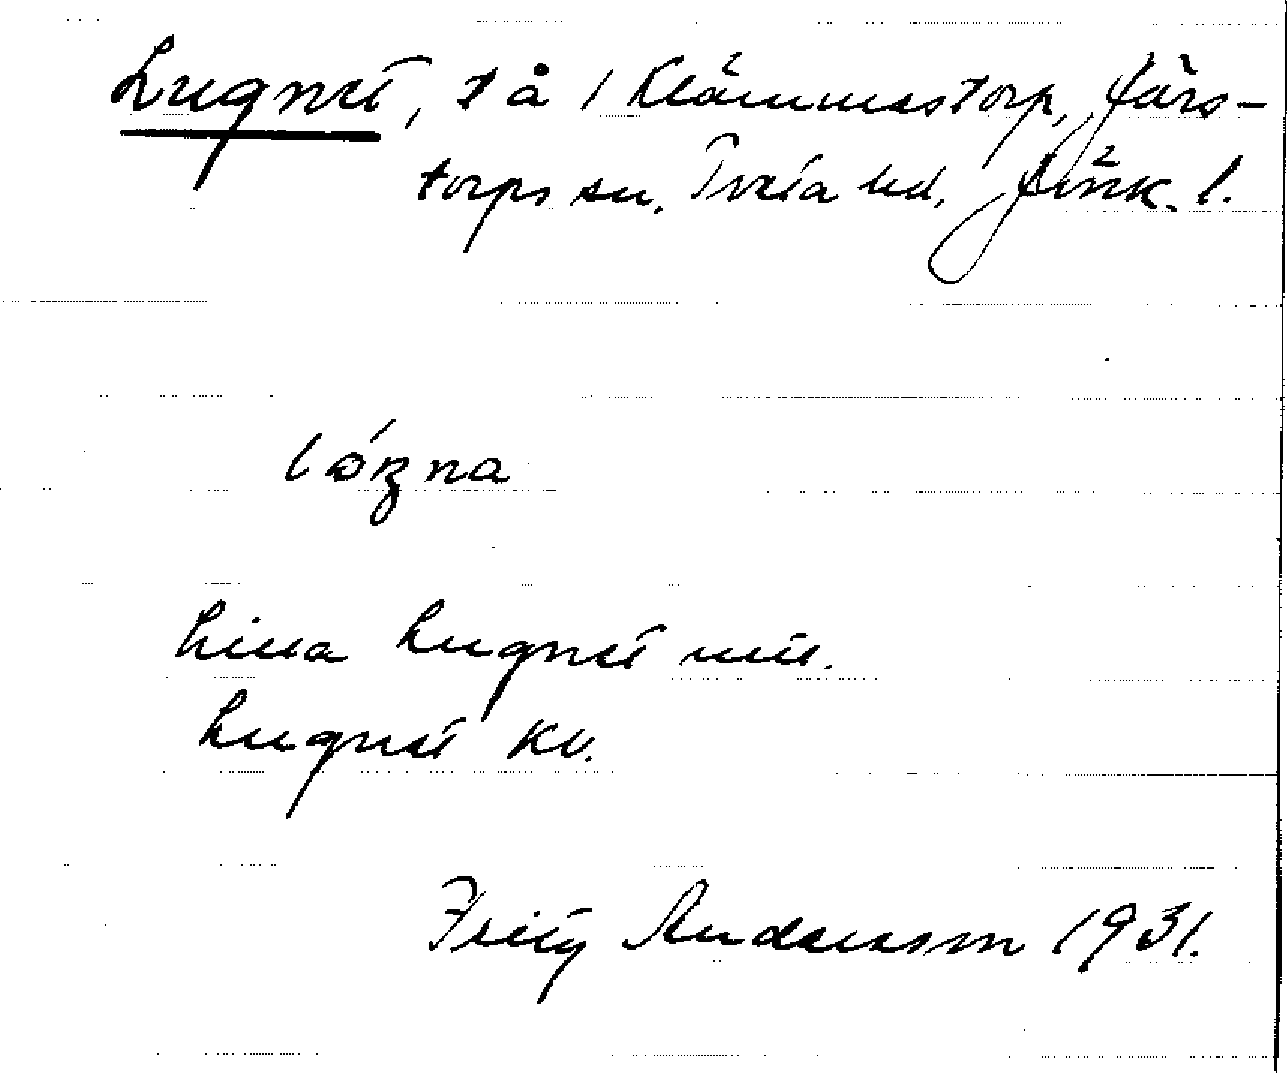 Lugnet, t å / Klämmestorp, Järs-
torps sn, Tveta hd, Jönk. l.
lóʒna
Lina Lugnet
Lugnet kv.
Fritz Andersson 1931.